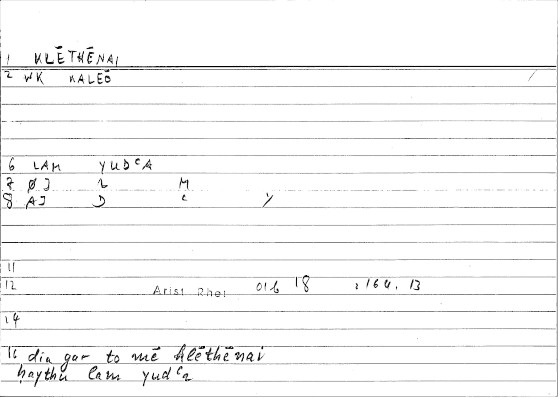 1 KLĒTHĒNAI
2 WK KALEŌ
6 LAM YUDᶜA
7 ØJ L M
8 AJ D ᶜ Y
11
12 Arist Rhet 01b 18 : 164, 13
14
16 dia gar to mē klēthēnai
ḥaythu lam yudᶜa